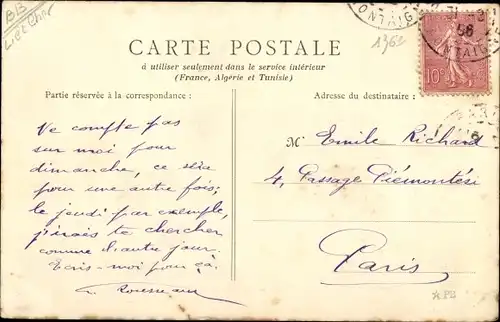 BB
Loir et Cher
1363
10c
06
CARTE POSTALE
à utiliser seulement dans le service intérieur
(France, Algérie et Tunisie)
Partie réservée à la correspondance :
Ne compte pas
sur moi pour
dimanche, ce sera
pour une autre fois;
le jeudi par exemple,
j'irais te chercher
comme l'autre jour.
Ecris-moi pour çà.
Rousseau
Adresse du destinataire :
M. Emile Richard
4, Passage Piémontési
Paris
PB